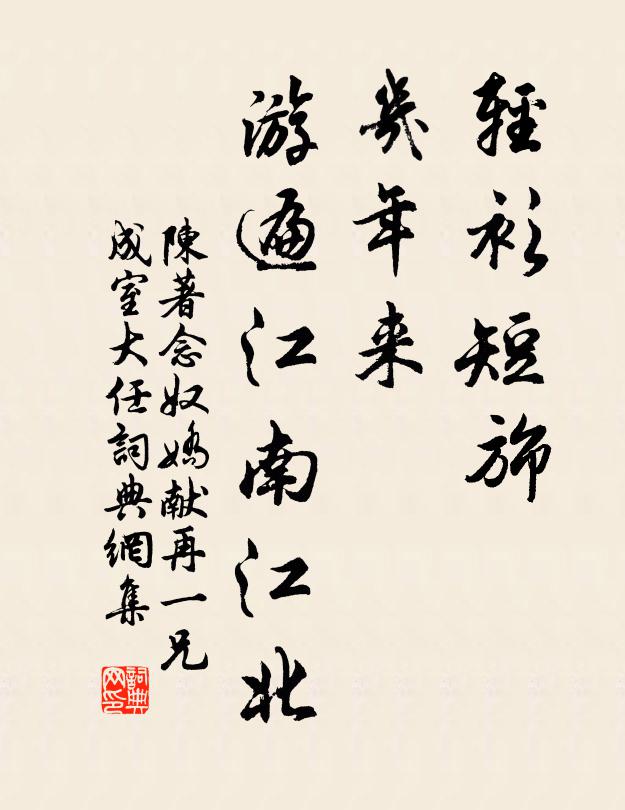 輕衫短旆
幾年来
游遍江南江北
陳著念奴嬌献再一兄
成室大任詞典網集
詞典网印